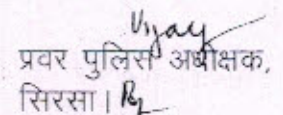 Vijay
प्रवर पुलिस अधीक्षक,
सिरसा।